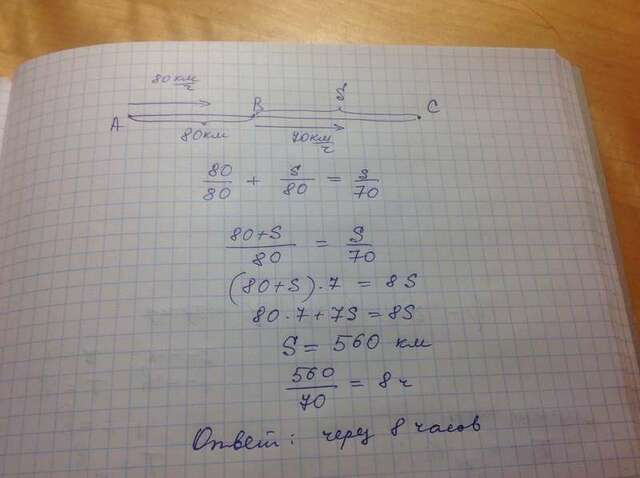 80 км/ч
A B S C
80 км 70 км/ч
80/80 + S/80 = S/70
80+S/80 = S/70
(80+S)·7 = 8S
80·7+7S=8S
S = 560 км
560/70 = 8 ч
Ответ: через 8 часов